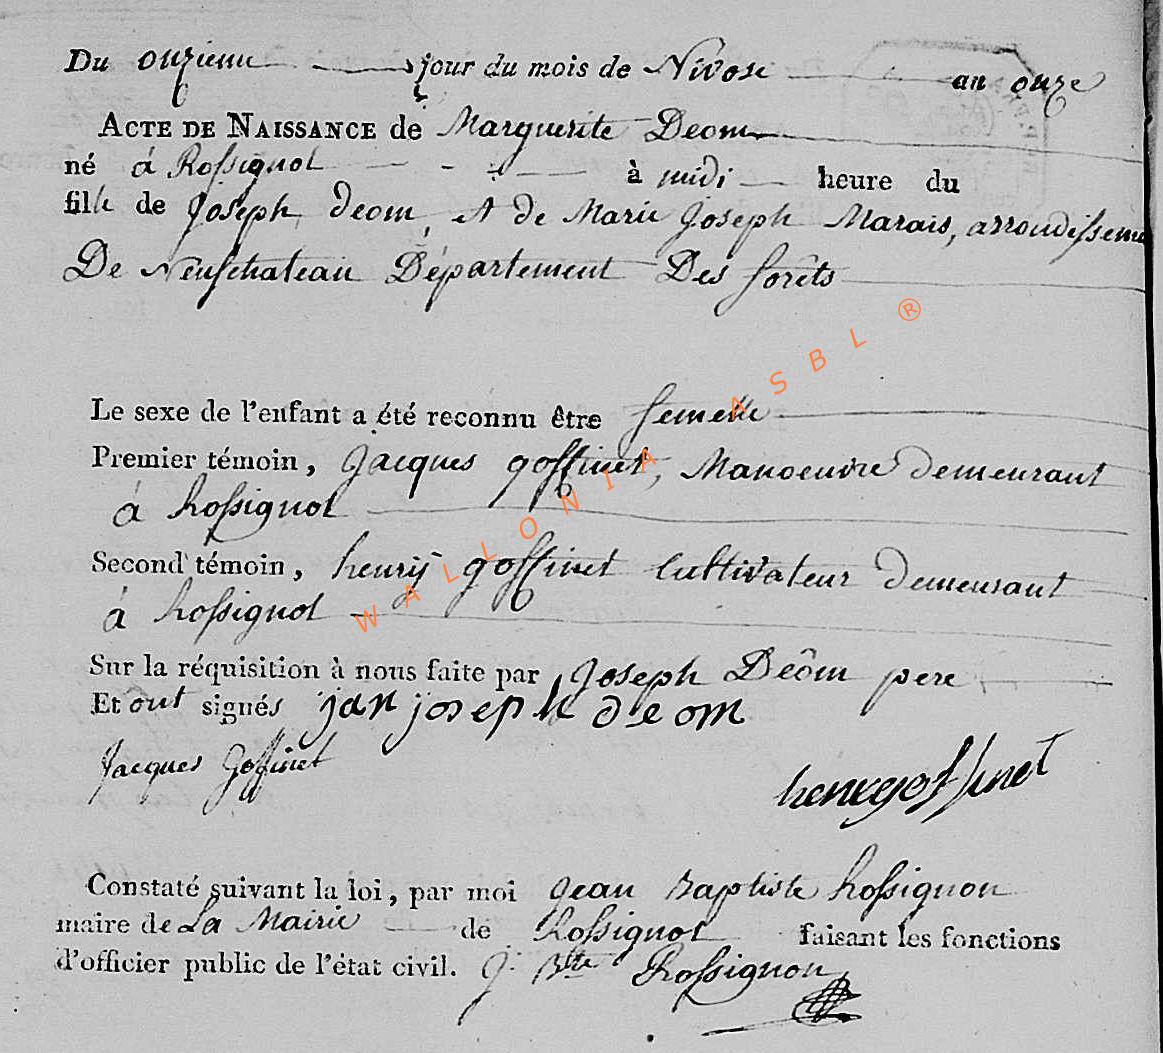 Du onzieme jour du mois de Nivose an onze
ACTE DE NAISSANCE de Marguerite Deom
né à Rossignol à midi heure du
fille de joseph deom, et de Marie joseph Marais, arrondisseme
De Neufchateau Département Des forêts
Le sexe de l'enfant a été reconnu être femelle
Premier témoin, jacques goffinet, Manoeuvre demeurant
à Rossignol
Second témoin, henrÿ goffinet Cultivateur demeurant
à Rossignol
Sur la réquisition à nous faite par joseph Dêom pere
Et ont signés jan joseph deom
Jacques Goffinet
henrygoffinet
Constaté suivant la loi, par moi jean Baptiste Rossignon
maire de La Mairie de Rossignol faisant les fonctions
d'officier public de l'état civil. J. Bte Rossignon
WALLONIA ASBL ®